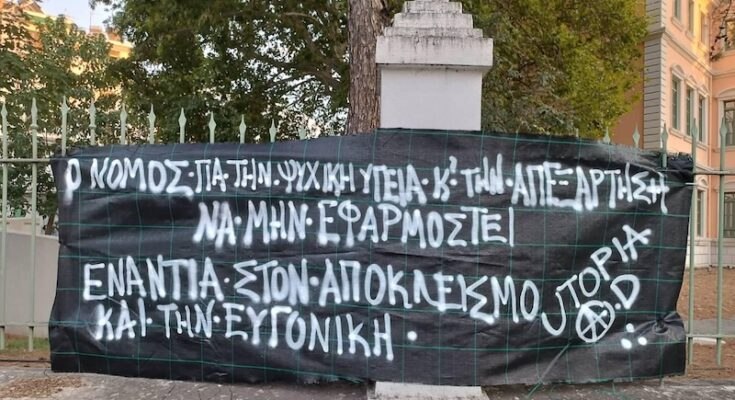 Ο ΝΟΜΟΣ·ΓΙΑ·ΤΗΝ·ΨΥΧΙΚΗ ΥΓΕΙΑ·Κ'·ΤΗΝ·ΑΠΕΞΑΡΤΗΣΗ
ΝΑ·ΜΗΝ·ΕΦΑΡΜΟΣΤΕΙ
ΕΝΑΝΤΙΑ·ΣΤΟΝ·ΑΠΟΚΛΕΙΣΜΟ
ΚΑΙ·ΤΗΝ·ΕΥΓΟΝΙΚΗ·
UTOPIA
A.D.